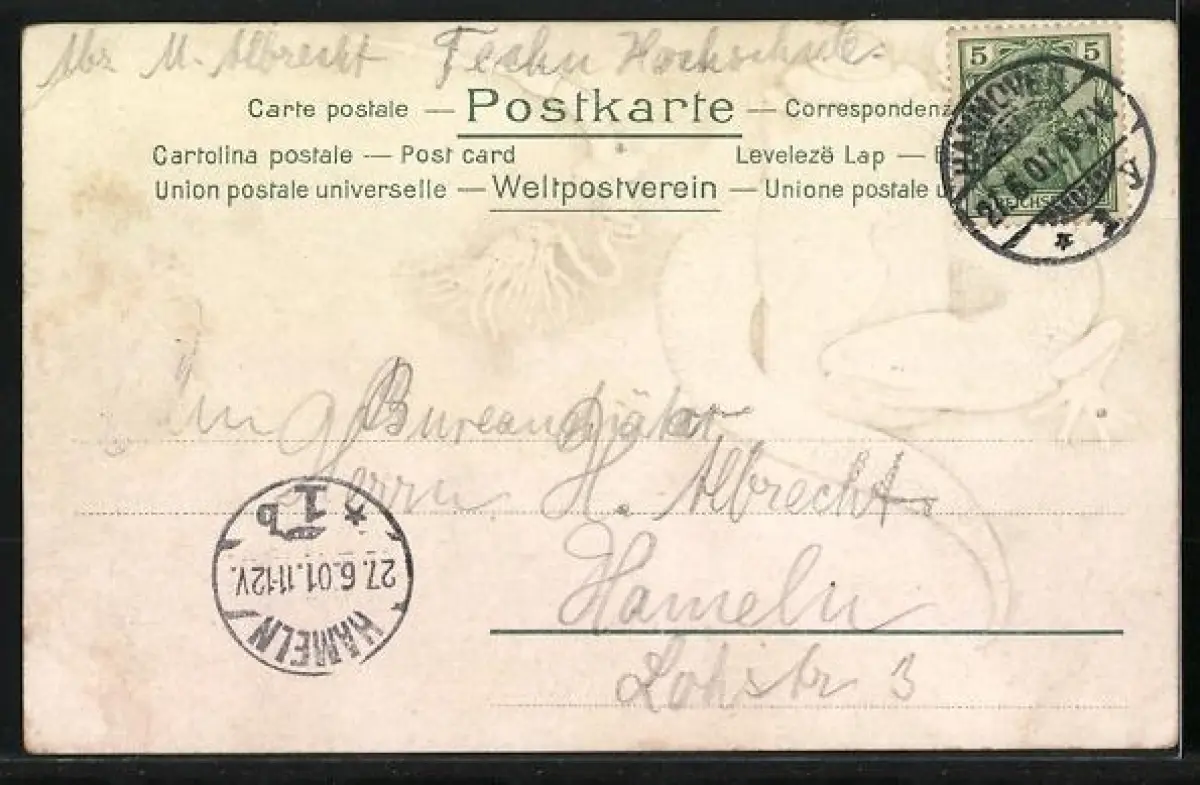 Abs M. Albrecht Techn Hochschule.
5 5
Carte postale — Postkarte — Correspondenz
Cartolina postale — Post card Levelezö Lap —
Union postale universelle — Weltpostverein — Unione postale u
HANNOVER
27.6.01. 6-7V.
* 1
REICHSP
Herrn H. Albrecht
Hameln
Lohstr 3
HAMELN
27.6.01.11-12V.
* 1b